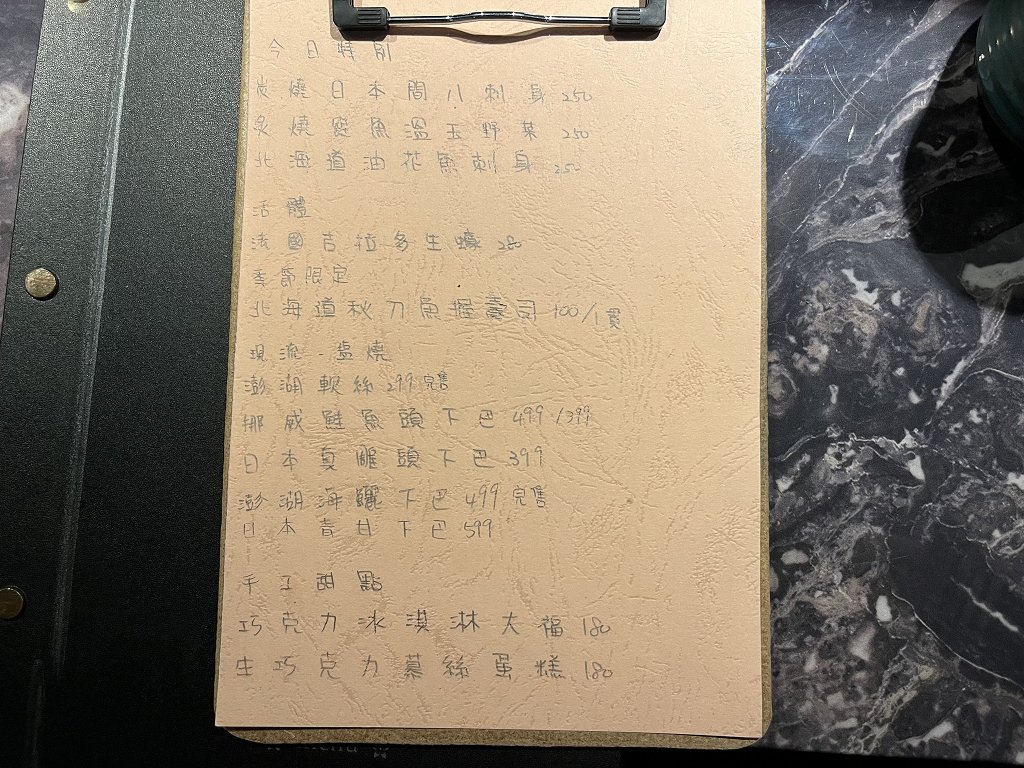 今日特別
炭燒日本間八刺身 250
炙燒鰻魚溫玉野菜 250
北海道油花魚刺身 250
活體
法國吉拉多生蠔 280
季節限定
北海道秋刀魚握壽司 100/1貫
現流.塩燒
澎湖軟絲 299 完售
挪威鮭魚頭下巴 499 /399
日本真鯛頭下巴 399
澎湖海鱺下巴 499 完售
日本青甘下巴 599
手工甜點
巧克力冰淇淋大福 180
生巧克力慕絲蛋糕 180